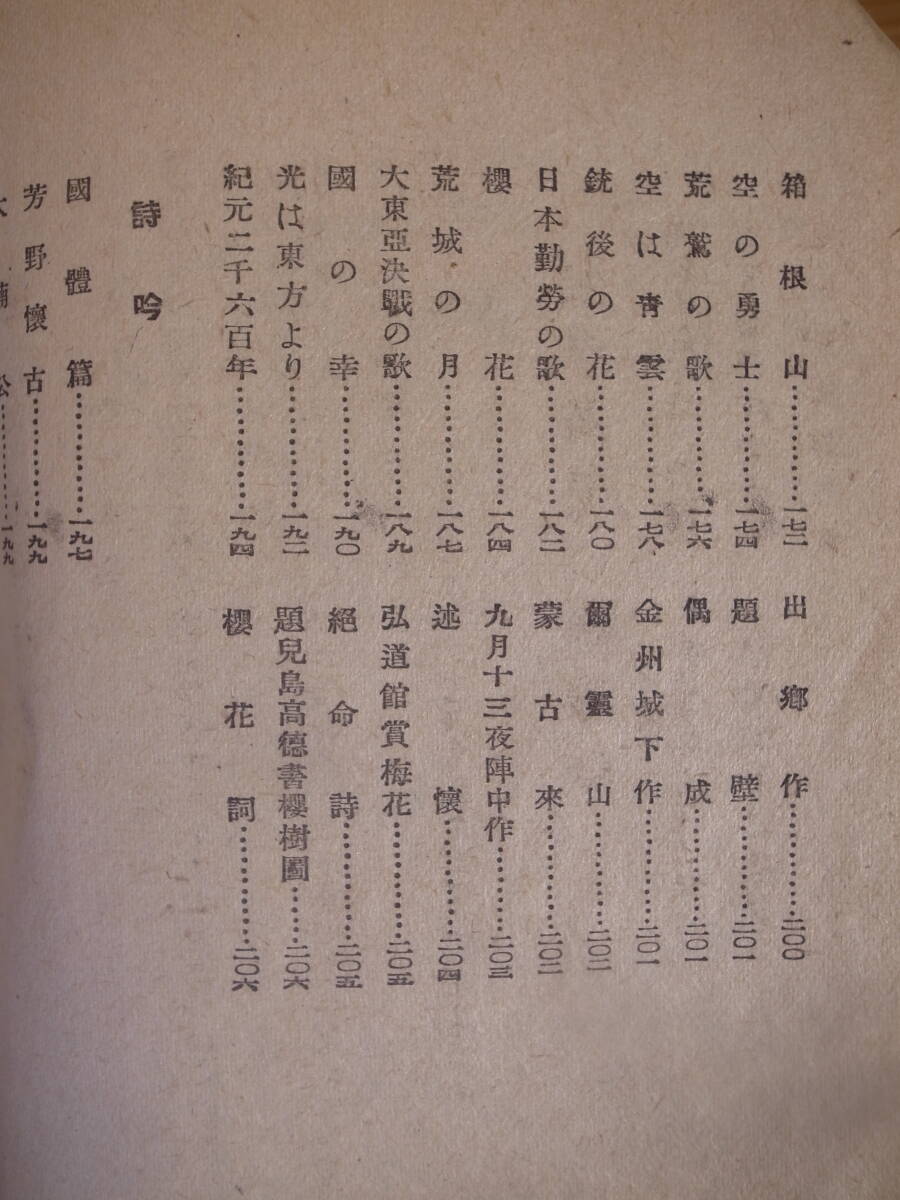 箱根山…………一七二
空の勇士…………一七四
荒鷲の歌…………一七六
空は青雲…………一七八
銃後の花…………一八〇
日本勤勞の歌…………一八二
櫻花…………一八四
荒城の月…………一八七
大東亞決戰の歌…………一八九
國の幸…………一九〇
光は東方より…………一九二
紀元二千六百年…………一九四
詩吟
國體篇…………一九七
芳野懷古…………一九九
大楠公…………一九九
出鄕作…………二〇〇
題壁…………二〇一
偶成…………二〇一
金州城下作…………二〇一
爾靈山…………二〇二
蒙古來…………二〇二
九月十三夜陣中作…………二〇三
述懷…………二〇四
弘道館賞梅花…………二〇五
絕命詩…………二〇五
題兒島高德書櫻樹圖……二〇六
櫻花詞…………二〇六